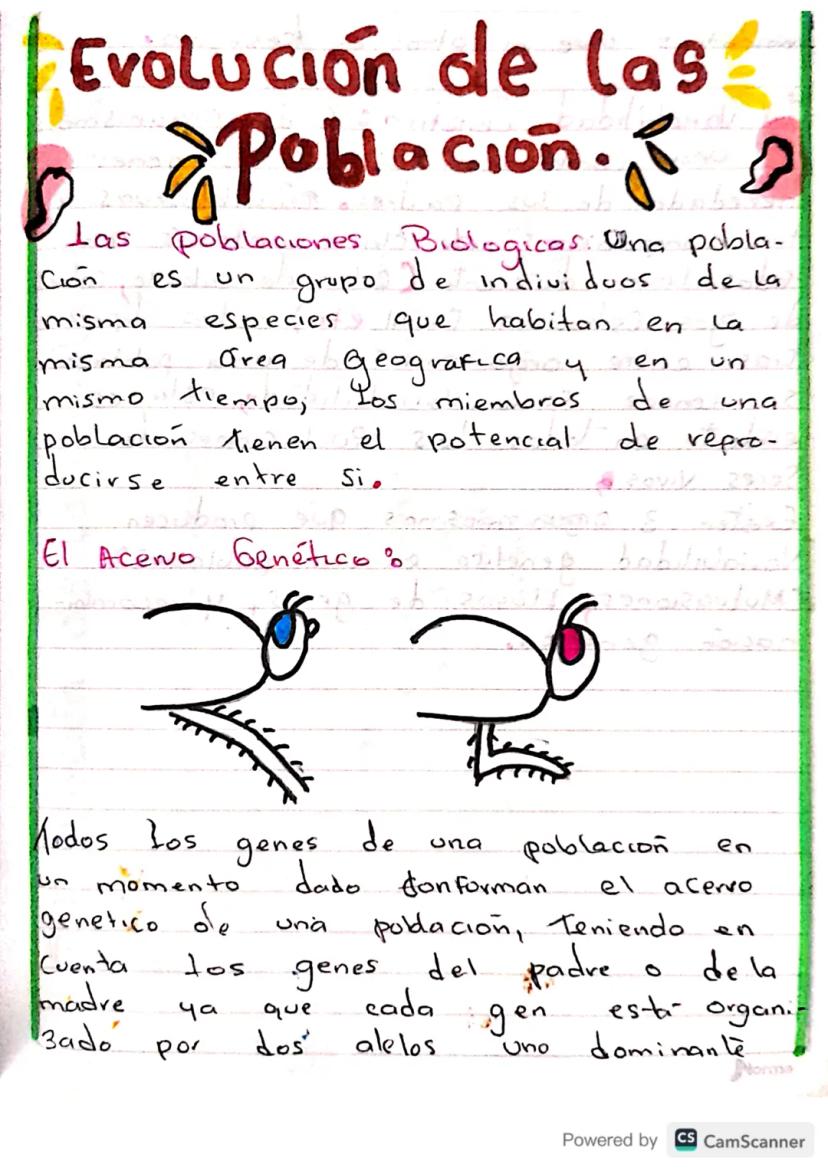 Evolución de las
Población.
Las poblaciones Biologicas. Una pobla-
ción es un grupo de individuos de la
misma especies que habitan en la
misma área geografica y en un
mismo tiempo, los miembros de una
población tienen el potencial de repro-
ducirse entre si.
El Acervo Genético:
Todos los genes de una población en
un momento dado conforman el acervo
genetico de una población, Teniendo en
cuenta los genes del padre o de la
madre ya que cada gen está organi-
zado por dos alelos uno dominante
Norma
Powered by CS CamScanner